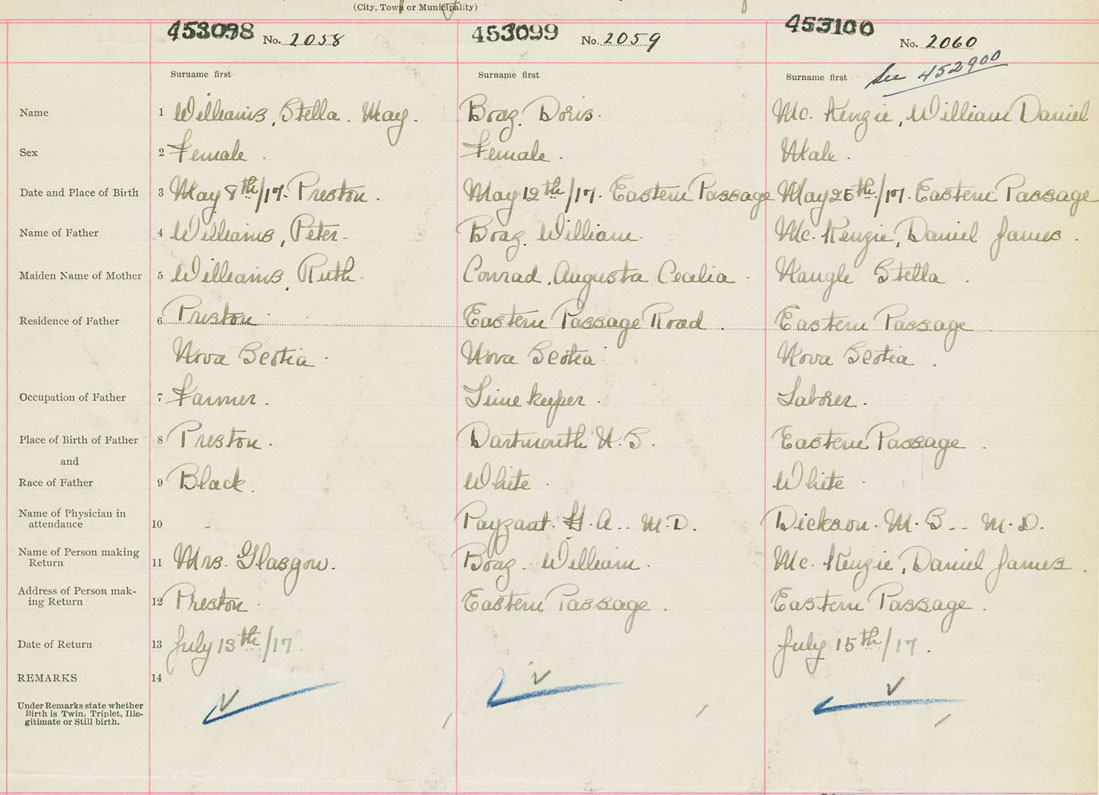 (City, Town or Municipality)
453098 No. 2058 453099 No. 2059 453100 No. 2060
Surname first Surname first Surname first See 452900
Name 1 Williams, Stella. May. Braz, Doris. Mc. Kenzie, William Daniel
Sex 2 Female. Female. Male.
Date and Place of Birth 3 May 8th/17. Preston. May 12th/17. Eastern Passage May 25th/17. Eastern Passage
Name of Father 4 Williams, Peter. Braz, William. Mc. Kenzie, Daniel James.
Maiden Name of Mother 5 Williams, Ruth. Conrad, Augusta Cecelia. Naugle Stella.
Residence of Father 6 Preston. Eastern Passage Road. Eastern Passage
Nova Scotia. Nova Scotia. Nova Scotia.
Occupation of Father 7 Farmer. Time keeper. Laborer.
Place of Birth of Father 8 Preston. Dartmouth N.S. Eastern Passage.
and
Race of Father 9 Black. White. White.
Name of Physician in
attendance 10 - Payzant. H. A.. M.D. Dickson. M. S.. M.D.
Name of Person making
Return 11 Mrs. Glasgow. Braz. William. Mc. Kenzie, Daniel James.
Address of Person mak-
ing Return 12 Preston. Eastern Passage. Eastern Passage.
Date of Return 13 July 13th/17. July 15th/17.
REMARKS 14
Under Remarks state whether
Birth is Twin, Triplet, Ille-
gitimate or Still birth.